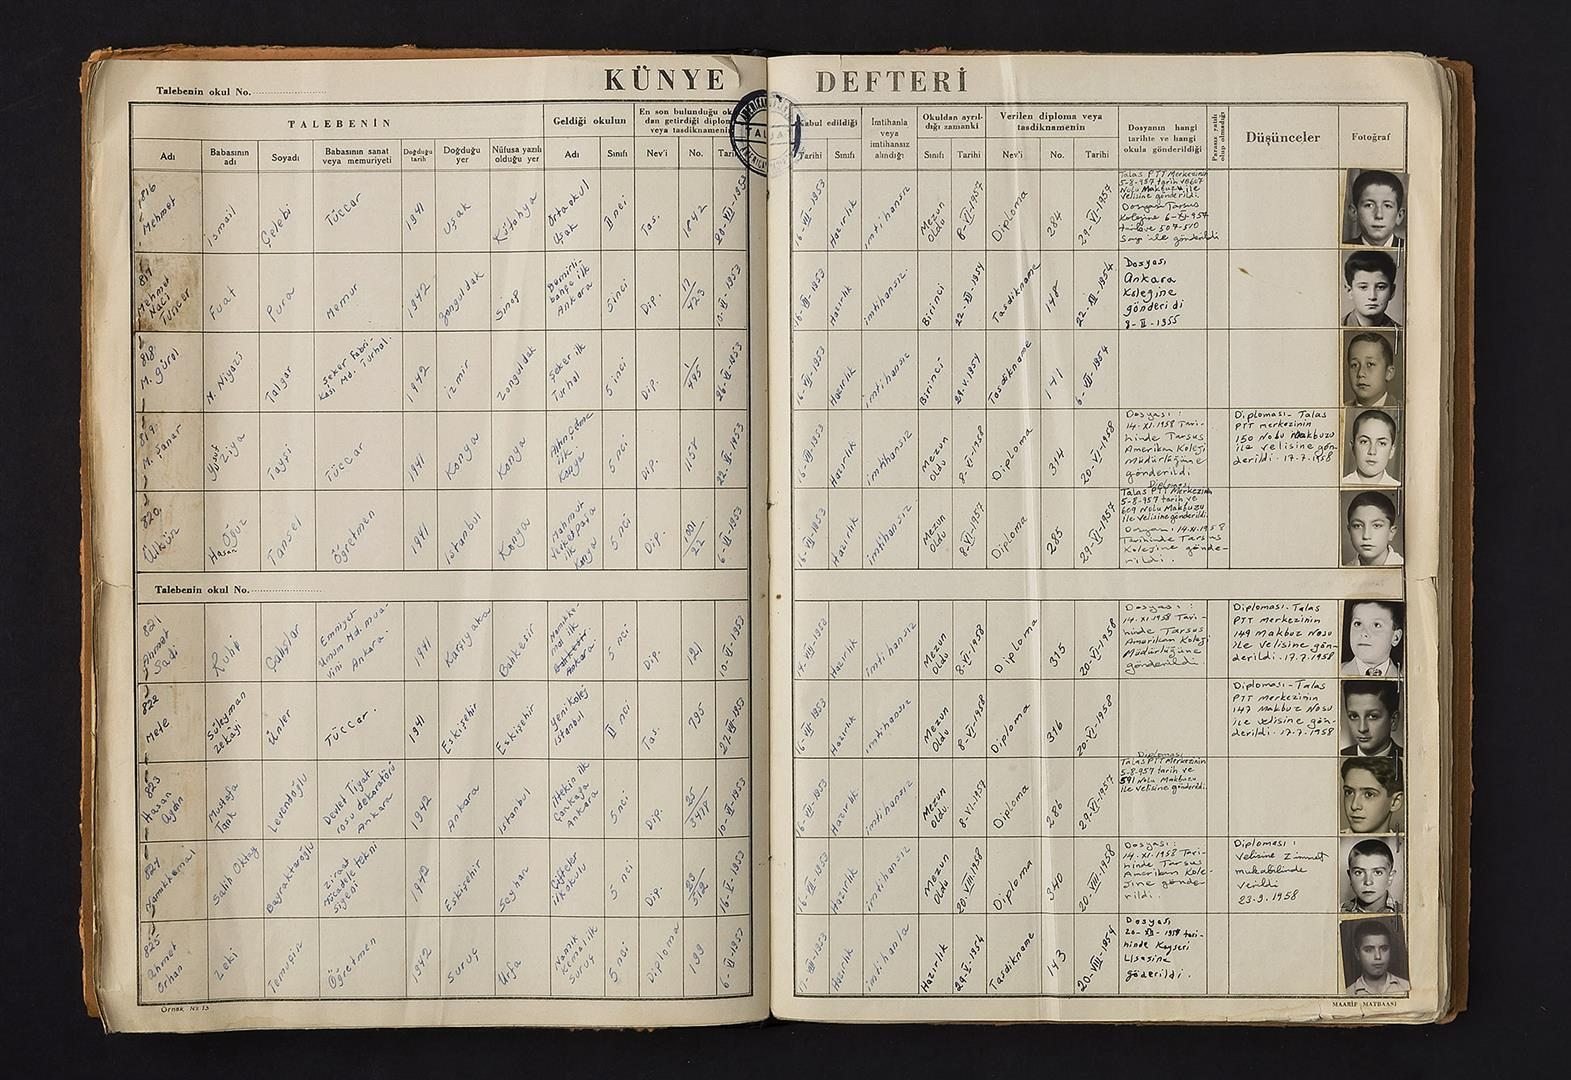 KÜNYE DEFTERİ
Talebenin okul No.
TALEBENİN
Geldiği okulun
En son bulunduğu okuldan getirdiği diploma veya tasdiknamenin
Kabul edildiği
İmtihanla veya imtihansız alındığı
Okuldan ayrıldığı zamanki
Verilen diploma veya tasdiknamenin
Dosyanın hangi tarihte ve hangi okula gönderildiği
Parasız yatılı olup olmadığı
Düşünceler
Fotoğraf
Adı
Babasının adı
Soyadı
Babasının sanat veya memuriyeti
Doğduğu tarih
Doğduğu yer
Nüfusa yazılı olduğu yer
Adı
Sınıfı
Nev'i
No.
Tarihi
Tarihi
Sınıfı
Sınıfı
Tarihi
Nev'i
No.
Tarihi
816 Mehmet İsmail Çelebi Tüccar 1941 Uşak Kütahya Ortaokul Uşak II nci Tas. 1042 20-VI-1953
16-VII-1953 Hazırlık imtihansız Mezun Oldu 8-VI-1957 Diploma 284 29-VI-1957
Talas PTT Merkezinin
5-8-957 tarih ve 607
Nolu Makbuzu ile
velisine gönderildi
Dosyası Tarsus
Kolejine 6-XI-957
tarih ve 507-510
Sayı ile gönderildi
817 Mehmet Naci Tuncer Fuat Pura Memur 1942 Zonguldak Sinop Demirlibahçe ilk Ankara 5 inci Dip. 12/423
16-VII-1953 Hazırlık imtihansız. Birinci 22-XII-1954 Tasdikname 148 22-XII-1954
Dosyası
Ankara
Kolejine
gönderildi
8-II-1955
818 M. Gürol M. Niyazi Talgar Şeker Fabrikası Md. Turhal. 1942 İzmir Zonguldak Şeker ilk Turhal 5 inci Dip. /495 26-VI-1953
16-VII-1953 Hazırlık imtihansız Birinci 29.V.1954 Tasdikname 141 6-VII-1954
819 M. Sanar Yusuf Ziya Tayşi Tüccar 1941 Konya Konya ilk Konya 5 nci Dip. 1158 22-VI-1953
16-VII-1953 Hazırlık imtihansız Mezun Oldu 8-VI-1958 Diploma 314 20-VI-1958
Dosyası:
14-XI-1958 Tari-
hinde Tarsus
Amerikan Koleji
Müdürlüğüne
gönderildi
Diploması- Talas
PTT merkezinin
150 Nolu Makbuzu
ile velisine gön-
derildi. 17-7-1958
820. Ülkün Hasan Oğuz Tansel Öğretmen 1941 İstanbul Konya Mahmut ilk Konya 5 nci Dip. 1001/22 6-VI-1953
16-VII-1953 Hazırlık imtihansız Mezun Oldu 8-VI-1957 Diploma 285 29-VI-1957
Diploması
Talas PTT Merkezinin
5-8-957 tarih ve
609 Nolu Makbuzu
ile velisine gönderildi
Dosyası: 14-XI-1958
Tarihinde Tarsus
Kolejine gönde-
rildi.
Talebenin okul No.
821 Ahmet Sadi Ruhi Çalışlar Emniyet Umum Md. muavini Ankara 1941 Karşıyaka Balıkesir ilk Ankara 5 nci Dip. 121 10-VI-1953
Hazırlık imtihansız Mezun Oldu 8-VI-1958 Diploma 315 20-VI-1958
Dosyası:
14-XI-1958 Tari-
hinde Tarsus
Amerikan Koleji
Müdürlüğüne
gönderildi
Diploması. Talas
PTT merkezinin
149 Makbuz Nosu
ile velisine gön-
derildi. 17-7-1958
822 Mete Süleyman Zekâyi Ünler Tüccar. 1941 Eskişehir Eskişehir Yeni Kolej İstanbul II nci Tas. 795
16-VII-1953 Hazırlık imtihansız Mezun Oldu 8-VI-1958 Diploma 316 20-VI-1958
Diploması - Talas
PTT merkezinin
147 Makbuz Nosu
ile velisine gön-
derildi. 17-7-1958
823 Hasan Aydın Mustafa Tarık Levendoğlu Devlet Tiyatrosu dekoratörü Ankara 1942 Ankara İstanbul İltekin ilk Çankaya Ankara 5 nci Dip. 25/3418 10-VI-1953
16-VII-1953 Hazırlık imtihansız Mezun oldu. 8-VI-1957 Diploma 286 29-VI-1957
Diploması
Talas PTT Merkezinin
5-8-957 tarih ve
591 Nolu Makbuzu
ile velisine gönderildi.
824 Namıkkemal Salih Oktay Bayraktaroğlu Ziraat mücadele tekni 1942 Eskişehir Seyhan Çifteler ilkokulu 5 nci Dip. 23/312 16-V-1953
16-VII-1953 Hazırlık imtihansız Mezun Oldu 20-VIII-1958 Diploma 340 20-VIII-1958
Dosyası:
14-XI-1958 Tari-
hinde Tarsus
Amerikan Kole-
jine gönde-
rildi.
Diploması:
Velisine zimmet
mukabilinde
verildi
23-9-1958
825 Ahmet Orhan Zeki Temuçin Öğretmen 1942 Suruç Urfa Namık Kemal ilk Suruç 5 nci Diploma 199 6-VI-1953
Hazırlık imtihanla Hazırlık 29-V-1954 Tasdikname 143 20-VIII-1954
Dosyası
20-XII-1954 tari-
hinde Kayseri
Lisesine
gönderildi.
Örnek No 13
MAARİF MATBAASI
TALAS